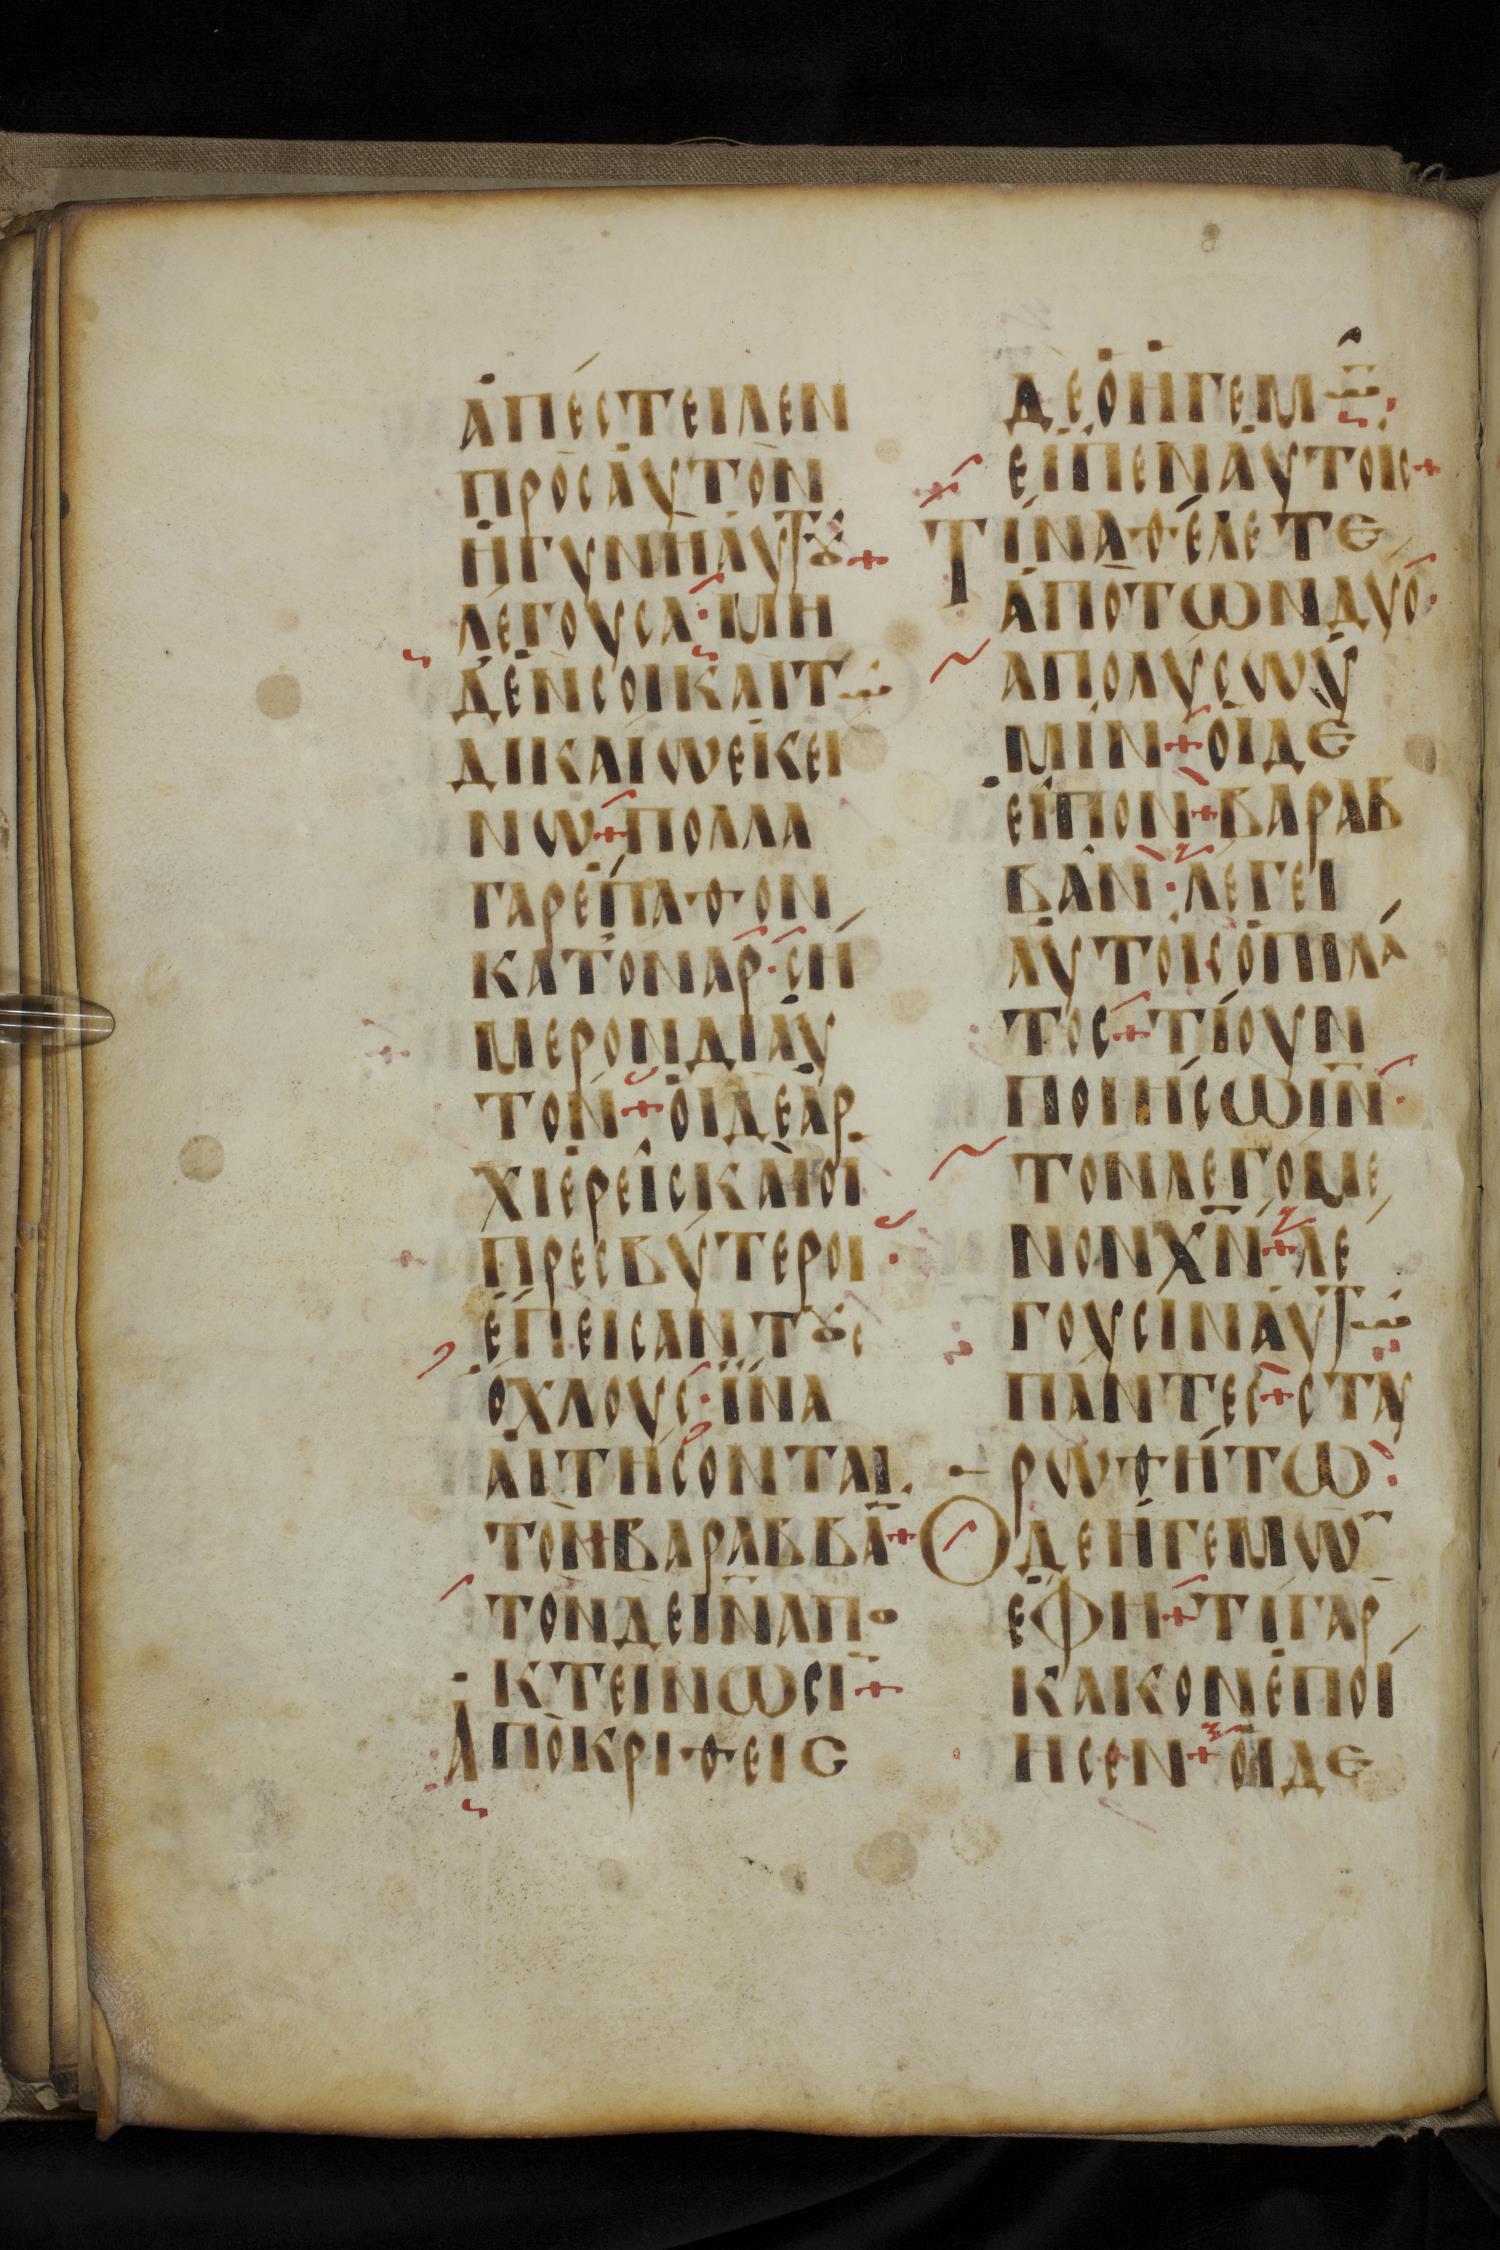 ἀπέστειλεν
πρὸσἀυτὸν
ἡγυνὴἀυτȣ+
λέγουσα·μη
δὲνσοικαιτῶ
δικαίωεκεί
νω+πολλα
γαρἔπαθον
κατόναρ·σή
μερονδιἀυ
τόν+ὁιδεἀρ
χιερεῖσκαὶὁι
πρεσβύτεροι·
ἔπεισαντȣσ
ὄχλουσ·ἵνα
ἀιτήσονται
τὸν+βαραββᾶ+
τονδειν̅απο
κτείνωσι+
Ἀπὸκριθεισ
δεὁἡγεμῶ
εἶπενἀυτοῖσ+
Τίναθέλετε
ἀπὸτωνδυο·
απολύσωὑ
μίν+ὁιδε
εἶπον+βαραβ
βᾶν·λεγει
ἀυτοῖσὁπιλά
τοσ+τίουν
ποιήσωιν̅·
τονλεγόμε
νονχν̅+λέ
γουσινἀυτῶ
πάντεσ+σταυ
ρωθήτω·
Οδεἡγεμὼ
ἔφη+τίγαρ
κακονἐποί
ησεν+ὁιδε